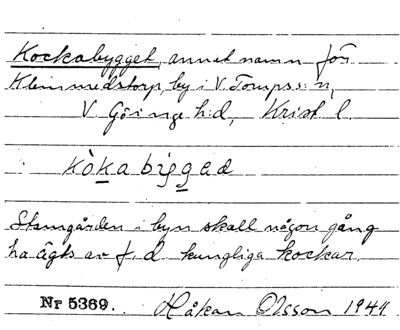 Kockabygget, annat namn för
Klemmedstorp, by i V. Torups s:n,
V Göinge h:d, Krist l.
kòkabygəd
Stamgården i byn skall någon gång
ha ägts av f.d. kungliga kockar.
Nr 5369. Håkan Olsson 1944